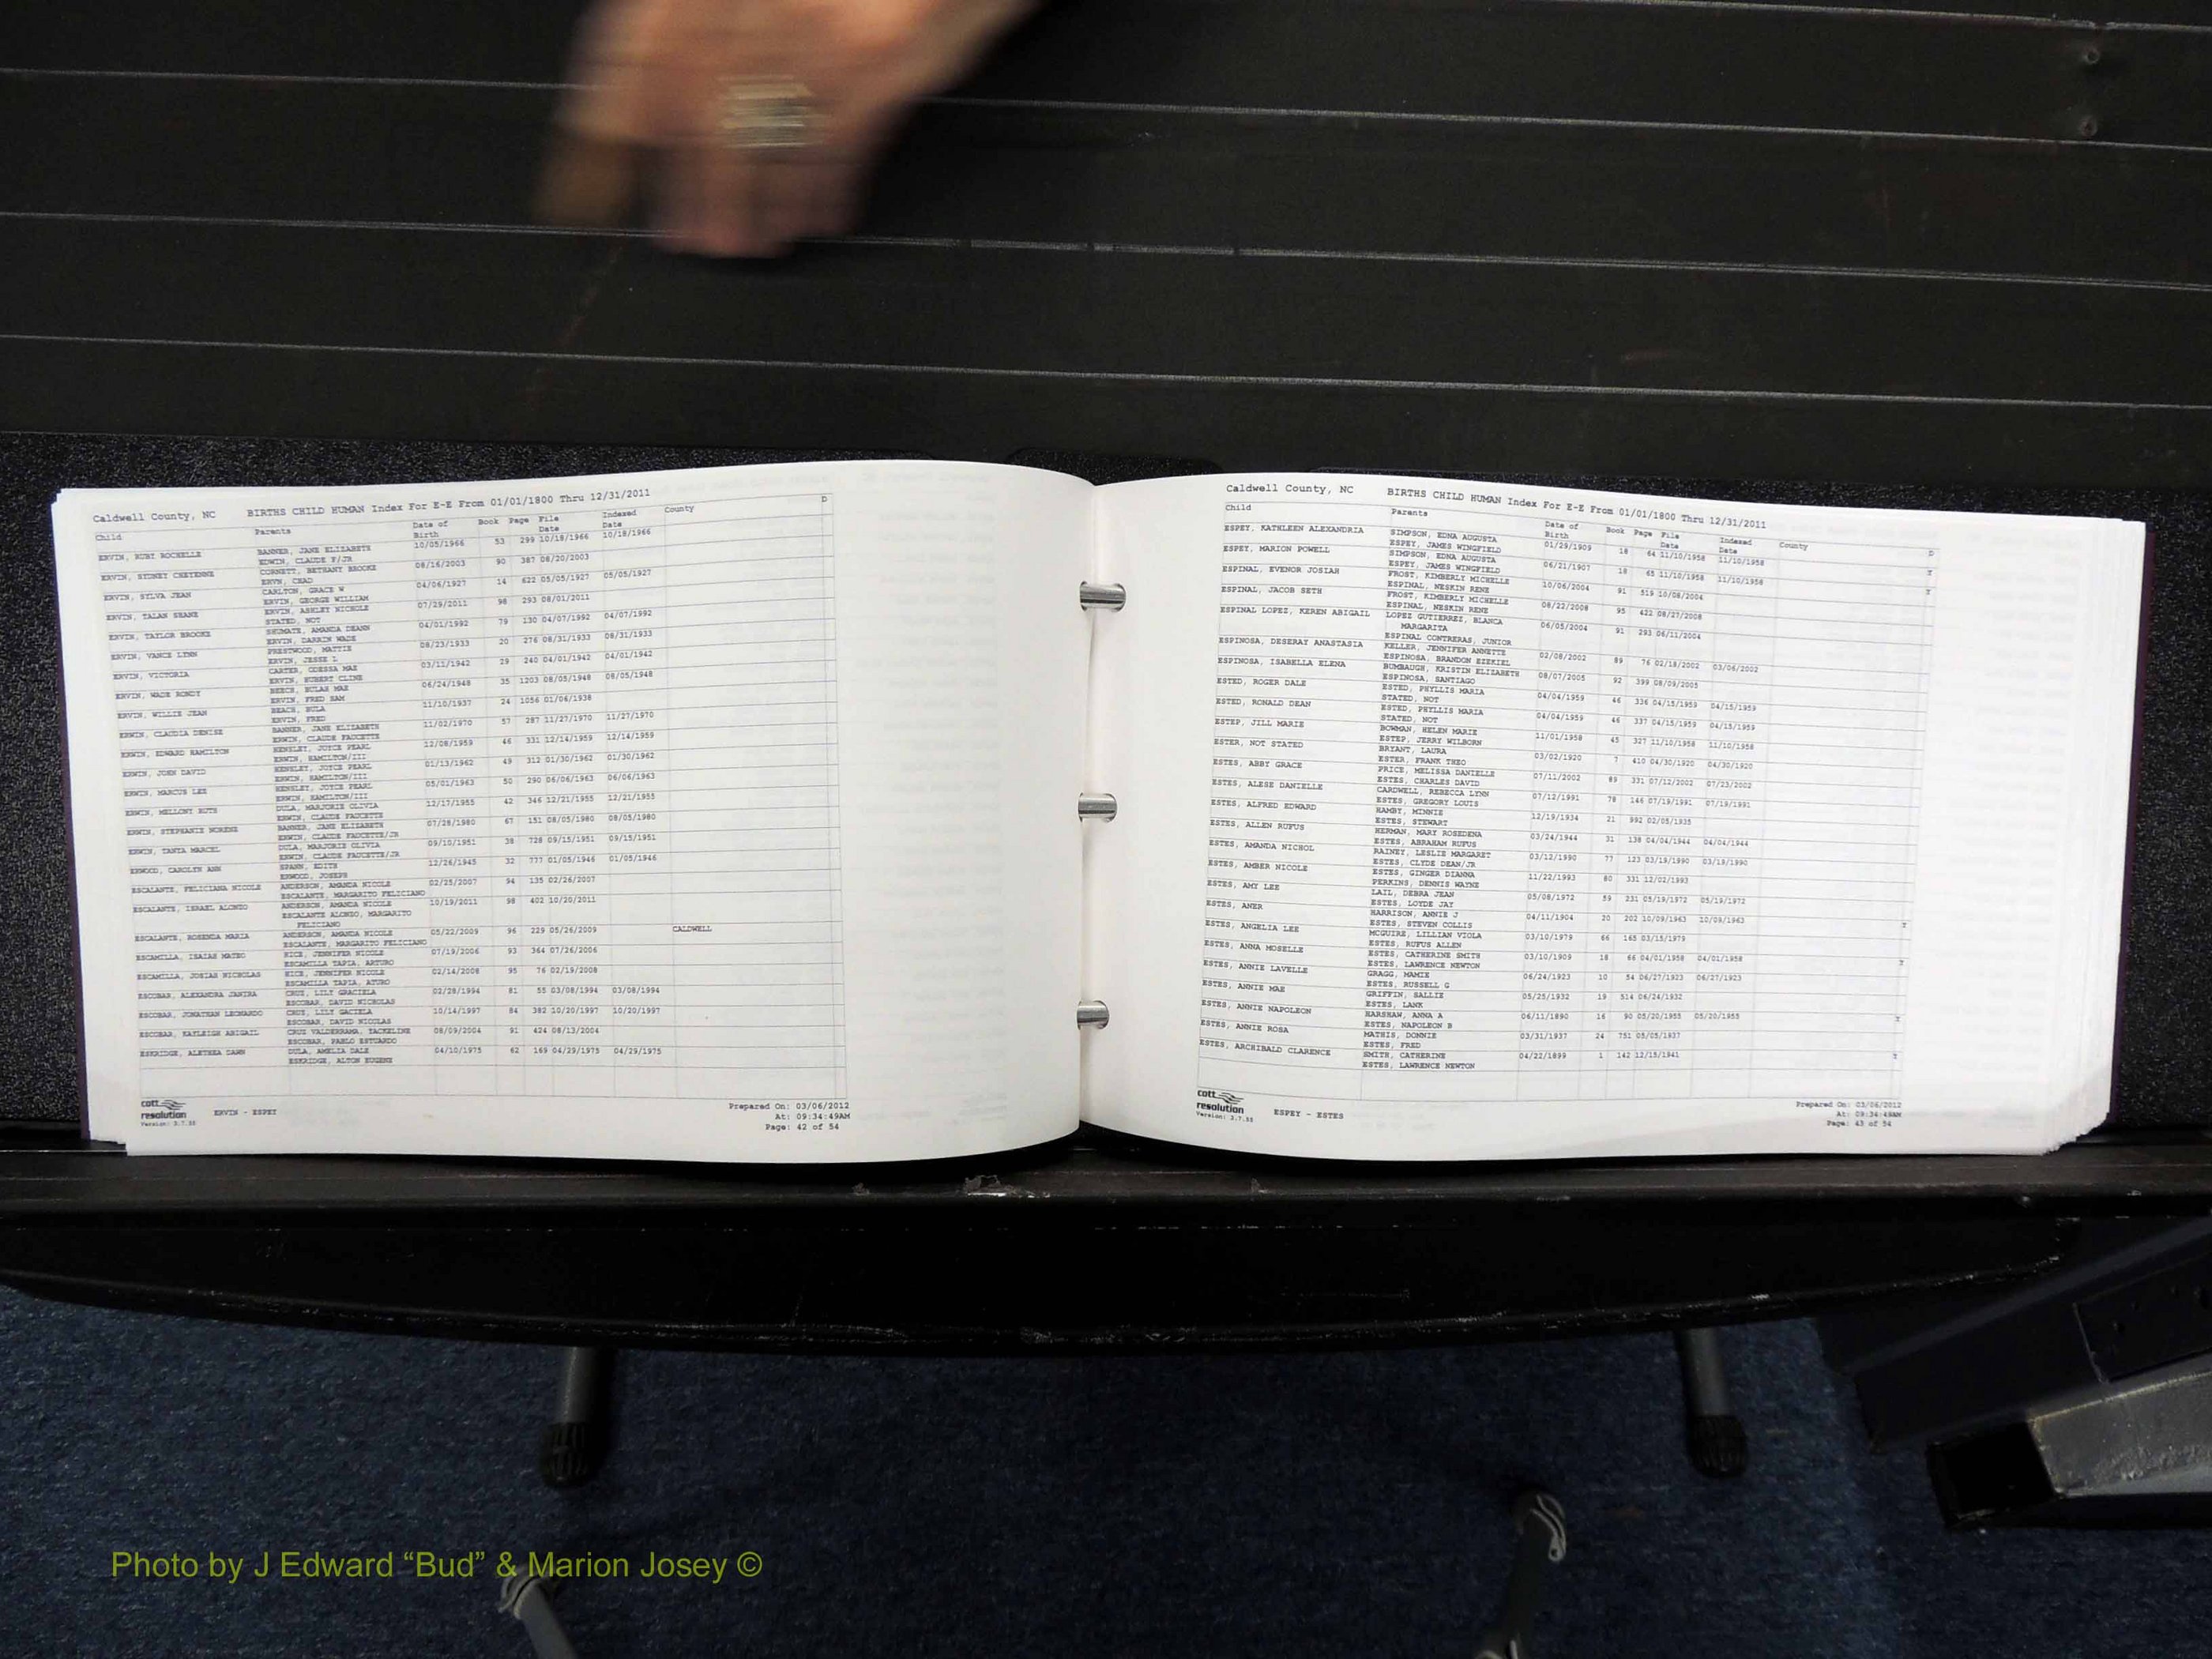 Caldwell County, NC BIRTHS CHILD HUMAN Index For E-E From 01/01/1800 Thru 12/31/2011
Child Parents Date of Birth Book Page File Date Indexed Date County D
ERVIN, RUBY ROCHELLE BANNER, JANE ELIZABETH 10/05/1966 53 299 10/18/1966 10/18/1966
EDWIN, CLAUDE F/JR
ERVIN, SYDNEY CHEYENNE CORNETT, BETHANY BROOKE 08/16/2003 90 387 08/20/2003
ERVN, CHAD
ERVIN, SYLVA JEAN CARLTON, GRACE W 04/06/1927 14 622 05/05/1927 05/05/1927
ERVIN, GEORGE WILLIAM
ERVIN, TALAN SHANE ERVIN, ASHLEY NICHOLE 07/29/2011 98 293 08/01/2011
STATED, NOT
ERVIN, TAYLOR BROOKE SHUMATE, AMANDA DEANN 04/01/1992 79 130 04/07/1992 04/07/1992
ERVIN, DARRIN WADE
ERVIN, VANCE LYNN PRESTWOOD, MATTIE 08/23/1933 20 276 08/31/1933 08/31/1933
ERVIN, JESSE L
ERVIN, VICTORIA CARTER, ODESSA MAE 03/11/1942 29 240 04/01/1942 04/01/1942
ERVIN, HUBERT CLINE
ERVIN, WADE RONDY BEECH, BULAH MAE 06/24/1948 35 1203 08/05/1948 08/05/1948
ERVIN, FRED SAM
ERVIN, WILLIE JEAN BEACH, BULA 11/10/1937 24 1056 01/06/1938
ERVIN, FRED
ERWIN, CLAUDIA DENISE BANNER, JANE ELIZABETH 11/02/1970 57 287 11/27/1970 11/27/1970
ERWIN, CLAUDE FAUCETTE
ERWIN, EDWARD HAMILTON HENSLEY, JOYCE PEARL 12/08/1959 46 331 12/14/1959 12/14/1959
ERWIN, HAMILTON/III
ERWIN, JOHN DAVID HENSLEY, JOYCE PEARL 01/13/1962 49 312 01/30/1962 01/30/1962
ERWIN, HAMILTON/III
ERWIN, MARCUS LEE HENSLEY, JOYCE PEARL 05/01/1963 50 290 06/06/1963 06/06/1963
ERWIN, HAMILTON/III
ERWIN, MELLONY RUTH DULA, MARJORIE OLIVIA 12/17/1955 42 346 12/21/1955 12/21/1955
ERWIN, CLAUDE FAUCETTE
ERWIN, STEPHANIE NORENE BANNER, JANE ELIZABETH 07/28/1980 67 151 08/05/1980 08/05/1980
ERWIN, CLAUDE FAUCETTE/JR
ERWIN, TANYA MARCEL DULA, MARJORIE OLIVIA 09/10/1951 38 728 09/15/1951 09/15/1951
ERWIN, CLAUDE FAUCETTE/JR
ERWOOD, CAROLYN ANN SPANN, EDITH 12/26/1945 32 777 01/05/1946 01/05/1946
ERWOOD, JOSEPH
ESCALANTE, FELICIANA NICOLE ANDERSON, AMANDA NICOLE 02/25/2007 94 135 02/26/2007
ESCALANTE, MARGARITO FELICIANO
ESCALANTE, ISRAEL ALONZO ANDERSON, AMANDA NICOLE 10/19/2011 98 402 10/20/2011
ESCALANTE ALONZO, MARGARITO
FELICIANO
ESCALANTE, ROSENDA MARIA ANDERSON, AMANDA NICOLE 05/22/2009 96 229 05/26/2009 CALDWELL
ESCALANTE, MARGARITO FELICIANO
ESCAMILLA, ISAIAS MATEO RICE, JENNIFER NICOLE 07/19/2006 93 364 07/26/2006
ESCAMILLA TAPIA, ARTURO
ESCAMILLA, JOSIAH NICHOLAS RICE, JENNIFER NICOLE 02/14/2008 95 76 02/19/2008
ESCAMILLA TAPIA, ATURO
ESCOBAR, ALEXANDRA JANIRA CRUZ, LILY GRACIELA 02/28/1994 81 55 03/08/1994 03/08/1994
ESCOBAR, DAVID NICHOLAS
ESCOBAR, JONATHAN LEONARDO CRUZ, LILY GACIELA 10/14/1997 84 382 10/20/1997 10/20/1997
ESCOBAR, DAVID NICOLAS
ESCOBAR, KAYLEIGH ABIGAIL CRUZ VALDERRAMA, YACKELINE 08/09/2004 91 424 08/13/2004
ESCOBAR, PABLO ESTUARDO
ESKRIDGE, ALETHEA DAWN DULA, AMELIA DALE 04/10/1975 62 169 04/29/1975 04/29/1975
ESKRIDGE, ALTON EUGENE
cott resolution Version: 3.7.55 ERVIN - ESPEY
Prepared On: 03/06/2012
At: 09:34:49AM
Page: 42 of 54
Caldwell County, NC BIRTHS CHILD HUMAN Index For E-E From 01/01/1800 Thru 12/31/2011
Child Parents Date of Birth Book Page File Date Indexed Date County D
ESPEY, KATHLEEN ALEXANDRIA SIMPSON, EDNA AUGUSTA 01/29/1909 18 64 11/10/1958 11/10/1958 Y
ESPEY, JAMES WINGFIELD
ESPEY, MARION POWELL SIMPSON, EDNA AUGUSTA 06/21/1907 18 65 11/10/1958 11/10/1958 Y
ESPEY, JAMES WINGFIELD
ESPINAL, EVENOR JOSIAH FROST, KIMBERLY MICHELLE 10/06/2004 91 519 10/08/2004
ESPINAL, NESKIN RENE
ESPINAL, JACOB SETH FROST, KIMBERLY MICHELLE 08/22/2008 95 422 08/27/2008
ESPINAL, NESKIN RENE
ESPINAL LOPEZ, KEREN ABIGAIL LOPEZ GUTIERREZ, BLANCA 06/05/2004 91 293 06/11/2004
MARGARITA
ESPINAL CONTRERAS, JUNIOR
ESPINOSA, DESERAY ANASTASIA KELLER, JENNIFER ANNETTE 02/08/2002 89 76 02/18/2002 03/06/2002
ESPINOSA, BRANDON EZEKIEL
ESPINOSA, ISABELLA ELENA BUMBAUGH, KRISTIN ELIZABETH 08/07/2005 92 399 08/09/2005
ESPINOSA, SANTIAGO
ESTED, ROGER DALE ESTED, PHYLLIS MARIA 04/04/1959 46 336 04/15/1959 04/15/1959
STATED, NOT
ESTED, RONALD DEAN ESTED, PHYLLIS MARIA 04/04/1959 46 337 04/15/1959 04/15/1959
STATED, NOT
ESTEP, JILL MARIE BOWMAN, HELEN MARIE 11/01/1958 45 327 11/10/1958 11/10/1958
ESTEP, JERRY WILBORN
ESTER, NOT STATED BRYANT, LAURA 03/02/1920 7 410 04/30/1920 04/30/1920
ESTER, FRANK THEO
ESTES, ABBY GRACE PRICE, MELISSA DANIELLE 07/11/2002 89 331 07/12/2002 07/23/2002
ESTES, CHARLES DAVID
ESTES, ALESE DANIELLE CARDWELL, REBECCA LYNN 07/12/1991 78 146 07/19/1991 07/19/1991
ESTES, GREGORY LOUIS
ESTES, ALFRED EDWARD HAMBY, MINNIE 12/19/1934 21 992 02/05/1935
ESTES, STEWART
ESTES, ALLEN RUFUS HERMAN, MARY ROSEDENA 03/24/1944 31 138 04/04/1944 04/04/1944
ESTES, ABRAHAM RUFUS
ESTES, AMANDA NICHOL RAINEY, LESLIE MARGARET 03/12/1990 77 123 03/19/1990 03/19/1990
ESTES, CLYDE DEAN/JR
ESTES, AMBER NICOLE ESTES, GINGER DIANNA 11/22/1993 80 331 12/02/1993
PERKINS, DENNIS WAYNE
ESTES, AMY LEE LAIL, DEBRA JEAN 05/08/1972 59 231 05/19/1972 05/19/1972
ESTES, LOYDE JAY
ESTES, ANER HARRISON, ANNIE J 04/11/1904 20 202 10/09/1963 10/09/1963 Y
ESTES, STEVEN COLLIS
ESTES, ANGELIA LEE MCGUIRE, LILLIAN VIOLA 03/10/1979 66 165 03/15/1979
ESTES, RUFUS ALLEN
ESTES, ANNA MOSELLE ESTES, CATHERINE SMITH 03/10/1909 18 66 04/01/1958 04/01/1958 Y
ESTES, LAWRENCE NEWTON
ESTES, ANNIE LAVELLE GRAGG, MAMIE 06/24/1923 10 54 06/27/1923 06/27/1923
ESTES, RUSSELL G
ESTES, ANNIE MAE GRIFFIN, SALLIE 05/25/1932 19 514 06/24/1932
ESTES, LANK
ESTES, ANNIE NAPOLEON HARSHAW, ANNA A 06/11/1890 16 90 05/20/1955 05/20/1955 Y
ESTES, NAPOLEON B
ESTES, ANNIE ROSA MATHIS, DONNIE 03/31/1937 24 751 05/05/1937
ESTES, FRED
ESTES, ARCHIBALD CLARENCE SMITH, CATHERINE 04/22/1899 1 142 12/15/1941 Y
ESTES, LAWRENCE NEWTON
cott resolution Version: 3.7.55 ESPEY - ESTES
Prepared On: 03/06/2012
At: 09:34:49AM
Page: 43 of 54
Photo by J Edward “Bud” & Marion Josey ©